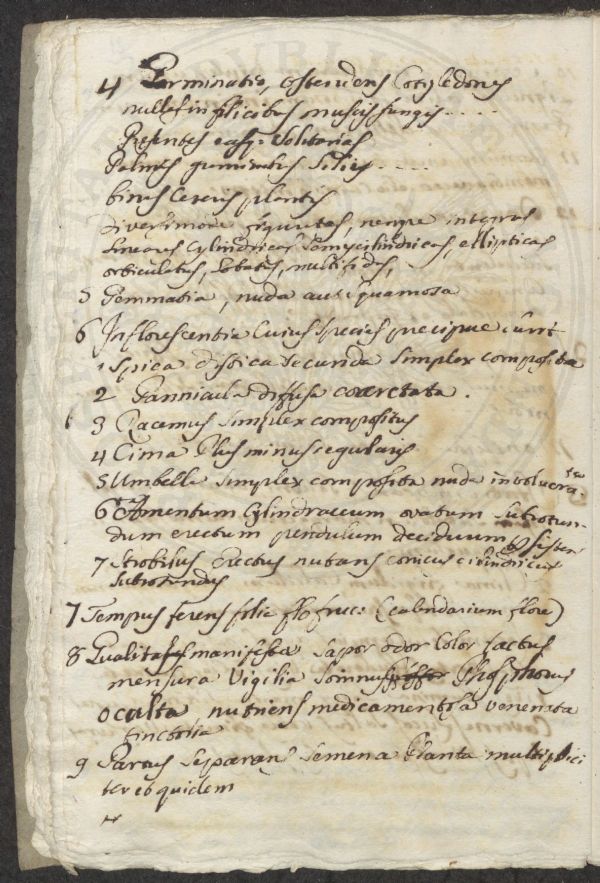 4 Germinatio, ostendens Cotyledones
nullas in filicibus muscis fungis ....
Presentes easq. solitarias
Palmis graminibus Liliis ....
binus Ceteris plantis
diversimode figuratas, nempe integras
Lineares Cylindricas Semycilindricas, ellipticas
orbiculatas, Lobatas, multifidas,
5 Gemmatia, nuda aut squamosa
6 Inflorescentia Cuius Species precipue sunt
1 Spica distica secunda Simplex composita
2 Panniacula diffusa coarctata.
3 Racemus Simplex compositus
4 Cima Plus minus regularis
5 Umbella Simplex composita nuda involucra
ta.
6 Amentum Cylindraceum ovatum subrotun
dum erectum pendulum deciduum persisten
7 Strobilus erectus nutans conicus cilindricus
Subrotundus
7 Tempus ferens folia flo fruc: (calendarium flore)
8 Qualitates manifestæ Sapor odor Color tactus
mensura Vigilia Somnus Phosphorus
oculta nutriens medicamentosa venenata
tinctoria
9 Partus Separans Semena Planta multiplici
ter et quidem